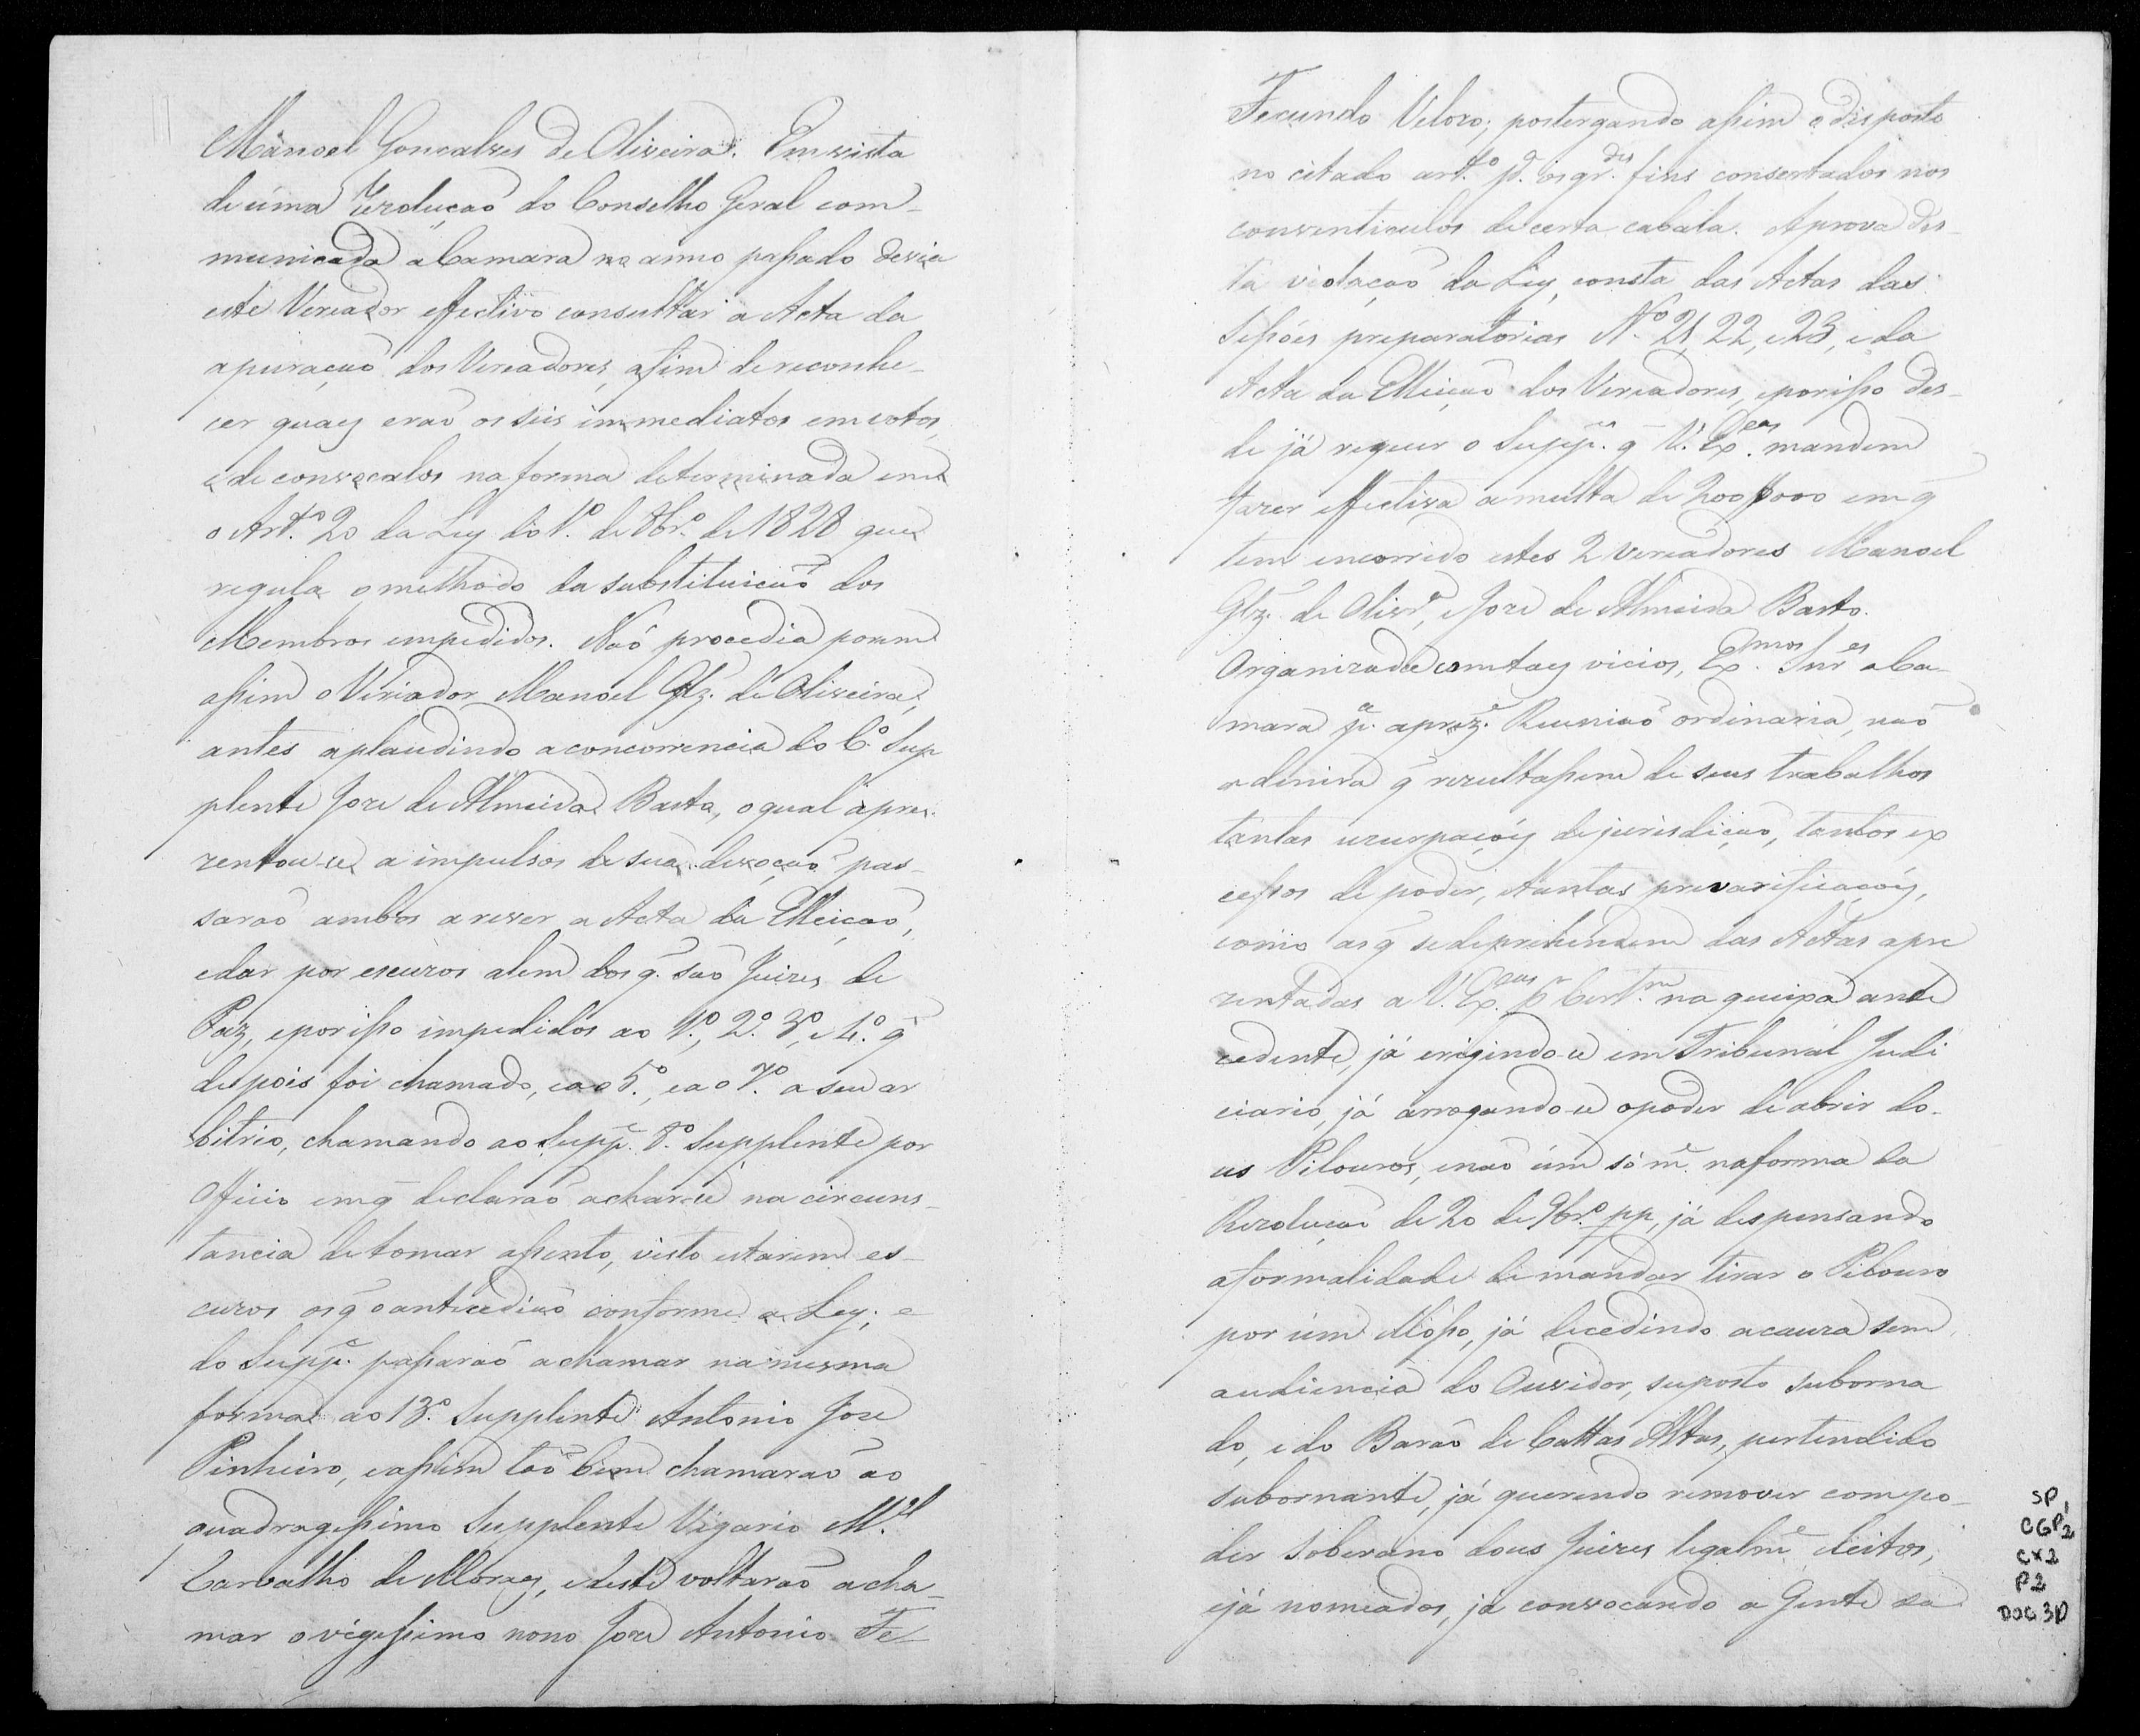 Manoel Goncalves de Oliveira. Em vista
de úma Rezoluçaõ do Conselho Geral com-
municada a Camara no anno passado devia
este Vereador effectivo consultar a Acta da
apuraçaõ dos Vereadores, afim de reconhe-
cer quaes eraõ os seis immediatos em votos,
e de convocalos na forma determinada em
o Art.º 20 da Ley do 1.º de 8br.º de 1828 que
regula o methodo da substituiçaõ dos
Membros empedidos. Naõ procedia porem
assim o Veriador Manoel Glz. de Oliveira,
antes aplaudindo a concorrencia do 6.º Sup
plente Joze de Almeida Basto, o qual apre-
zentou-se a impulsos de sua devoçaõ pas-
saraõ ambos a rever a Acta da Elleiçaõ,
e dar por escuzos alem dos q̃ saõ Juizes de
Paz, e por isso impedidos ao 1.º, 2.º 3.º, e 4.º q̃
depois foi chamado, e ao 5.º, e ao 7.º a seu ar
bitrio, chamando ao Supp.e 8.º Supplente por
Officio em q̃ declaraõ achar-se na circuns-
tancia de tomar assento, visto estarem es-
cuzos os q̃ o antecediaõ conforme a Ley; e
do Supp.e passaraõ a chamar na mesma
forma ao 13.º Supplente Antonio Joze
Pinheiro, e assim taõ bem chamaraõ ao
quadragessimo Supplente Vigario M.el
Carvalho de Moraes, e deste voltaraõ a cha-
mar o vigessimo nono Joze Antonio Fe-
Fecundo Velozo; postergando assim o disposto
no citado art.º p.a os gr.des fins consertados nos
conventiculos de certa cabala. A prova des-
ta violaçaõ da Ley, consta das Actas das
Sessões preparatorias N.º 21, 22, e 23, e da
Acta da Elleiçaõ dos Vereadores, e por isso des-
de já requer o Supp.e q̃ V. Ex.cas mandem
fazer effectiva a multa de 200$000 em q̃
tem encorrido estes 2 vereadores Manoel
Glz. de Oliv.ra, e Joze de Almeida Basto.
Organizada com taes vicios, Ex.mos Snr.es a Ca-
mara p.a a prez.e Reuniaõ ordinaria, naõ
admira q̃ rezultassem de seus trabalhos
tantas uzurpaçoẽs de jurisdiçaõ, tantos ex
cessos de poder, tantas prevarificaçoẽs,
como as q̃ se deprehendem das Actas apre
zentadas a V. Ex.cas p.r Cert.m na queixa ante
cedente, já erigindo-se em Tribunal Judi
ciario, já arrogando-se o poder de abrir do-
us Pilouros, e naõ úm só m.e na forma da
Rezoluçaõ de 20 de 9br.º pp, já despensando
a formalidade de mandar tirar o Pilouro
por úm Mosso, já decedindo a cauza sem
audiencia do Ouvidor, suposto suborna
do, e do Baraõ de Cattas Altas, pertendido
subornante, já querendo remover com po-
der soberano dous Juizes legalm.e eleitos,
e já nomeados, já convocando a Gente da
SP1
CGP2
CX2
P2
DOC30